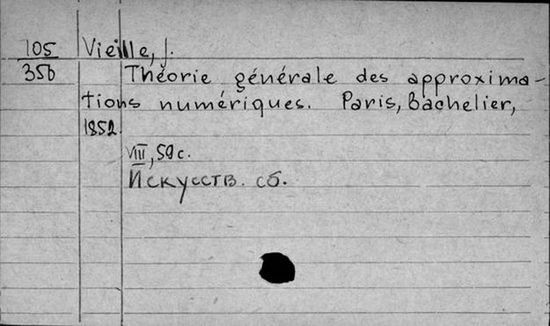 105 Vieille, J.
356 Théorie générale des approxima-
tions numériques. Paris, Bachelier,
1852.
VIII, 59 с.
Искусств. сб.